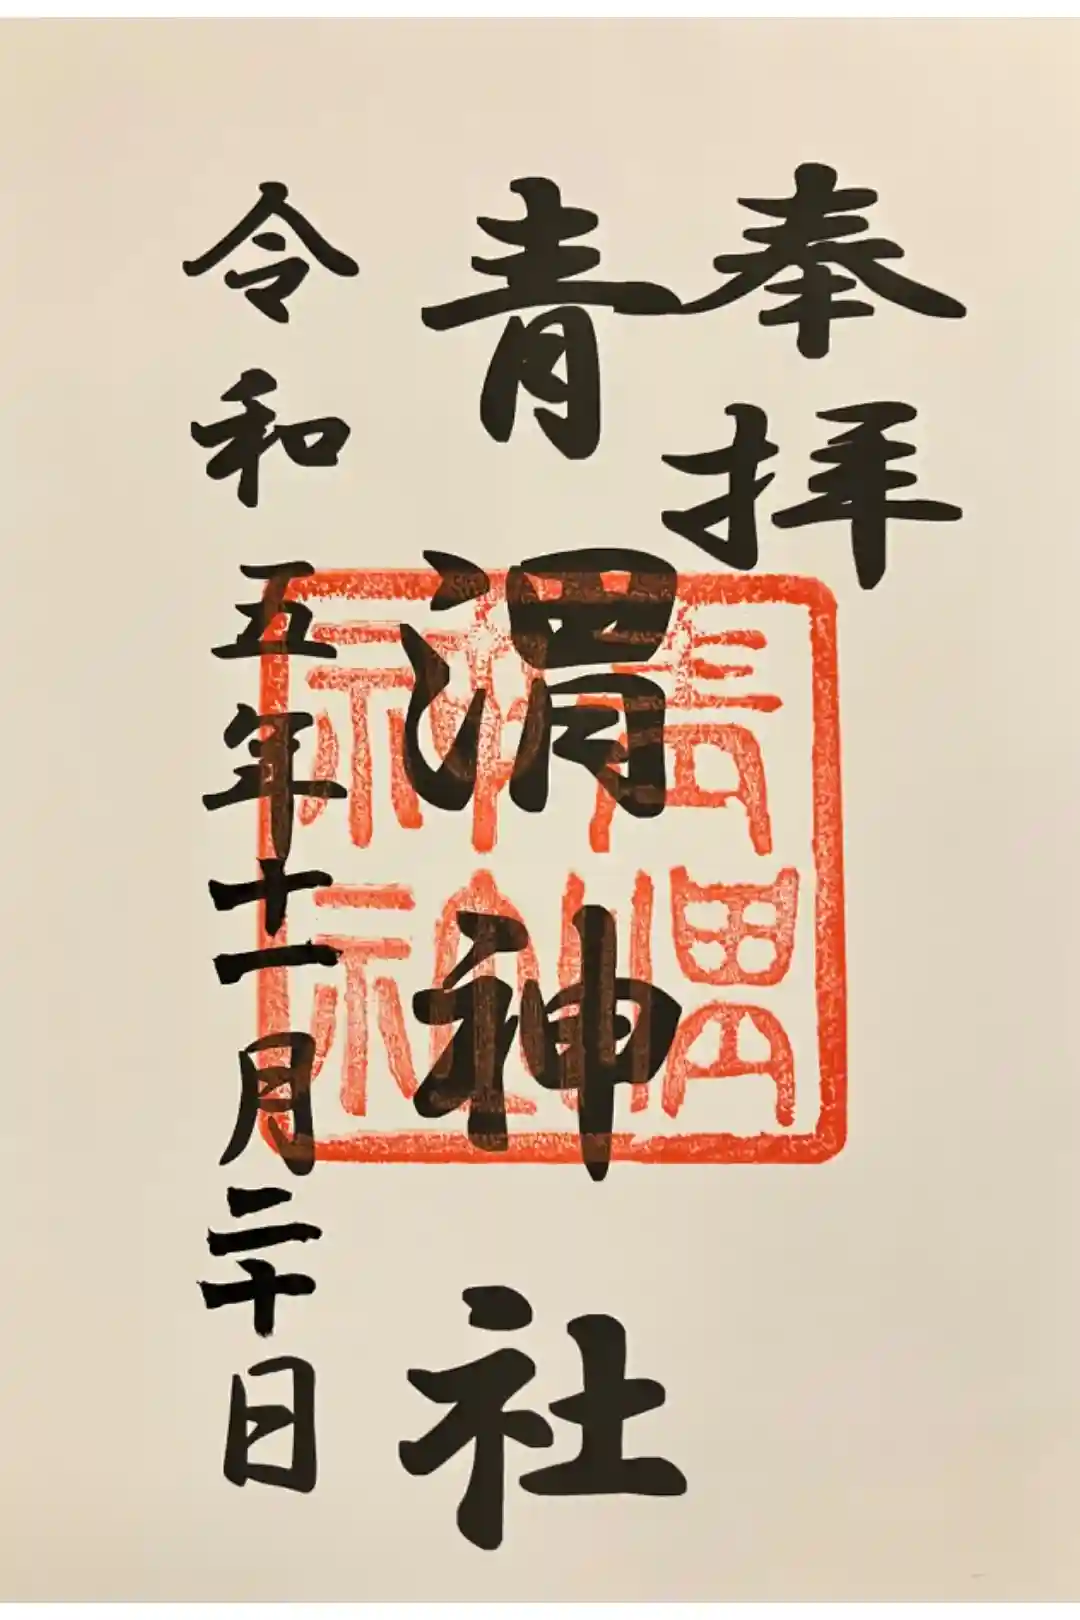 奉拝
青渭神社
青渭神社
令和五年十一月二十日